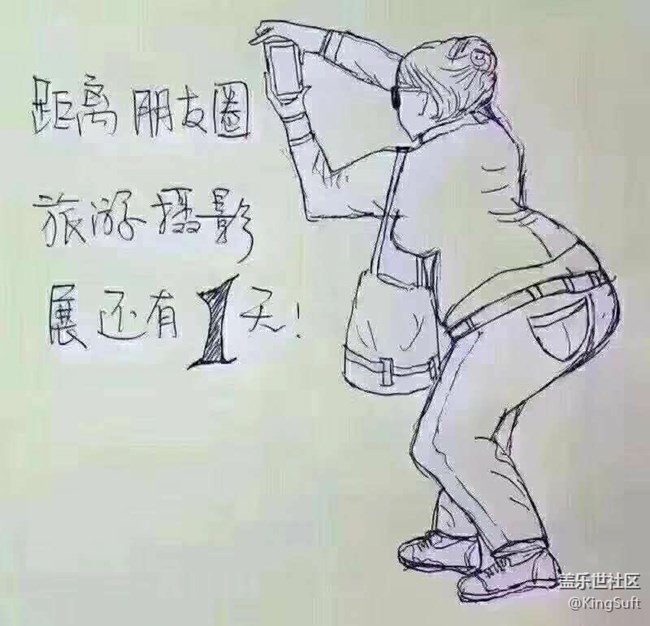 距离朋友圈
旅游摄影
展还有1天!
盖乐世社区
@KingSuft